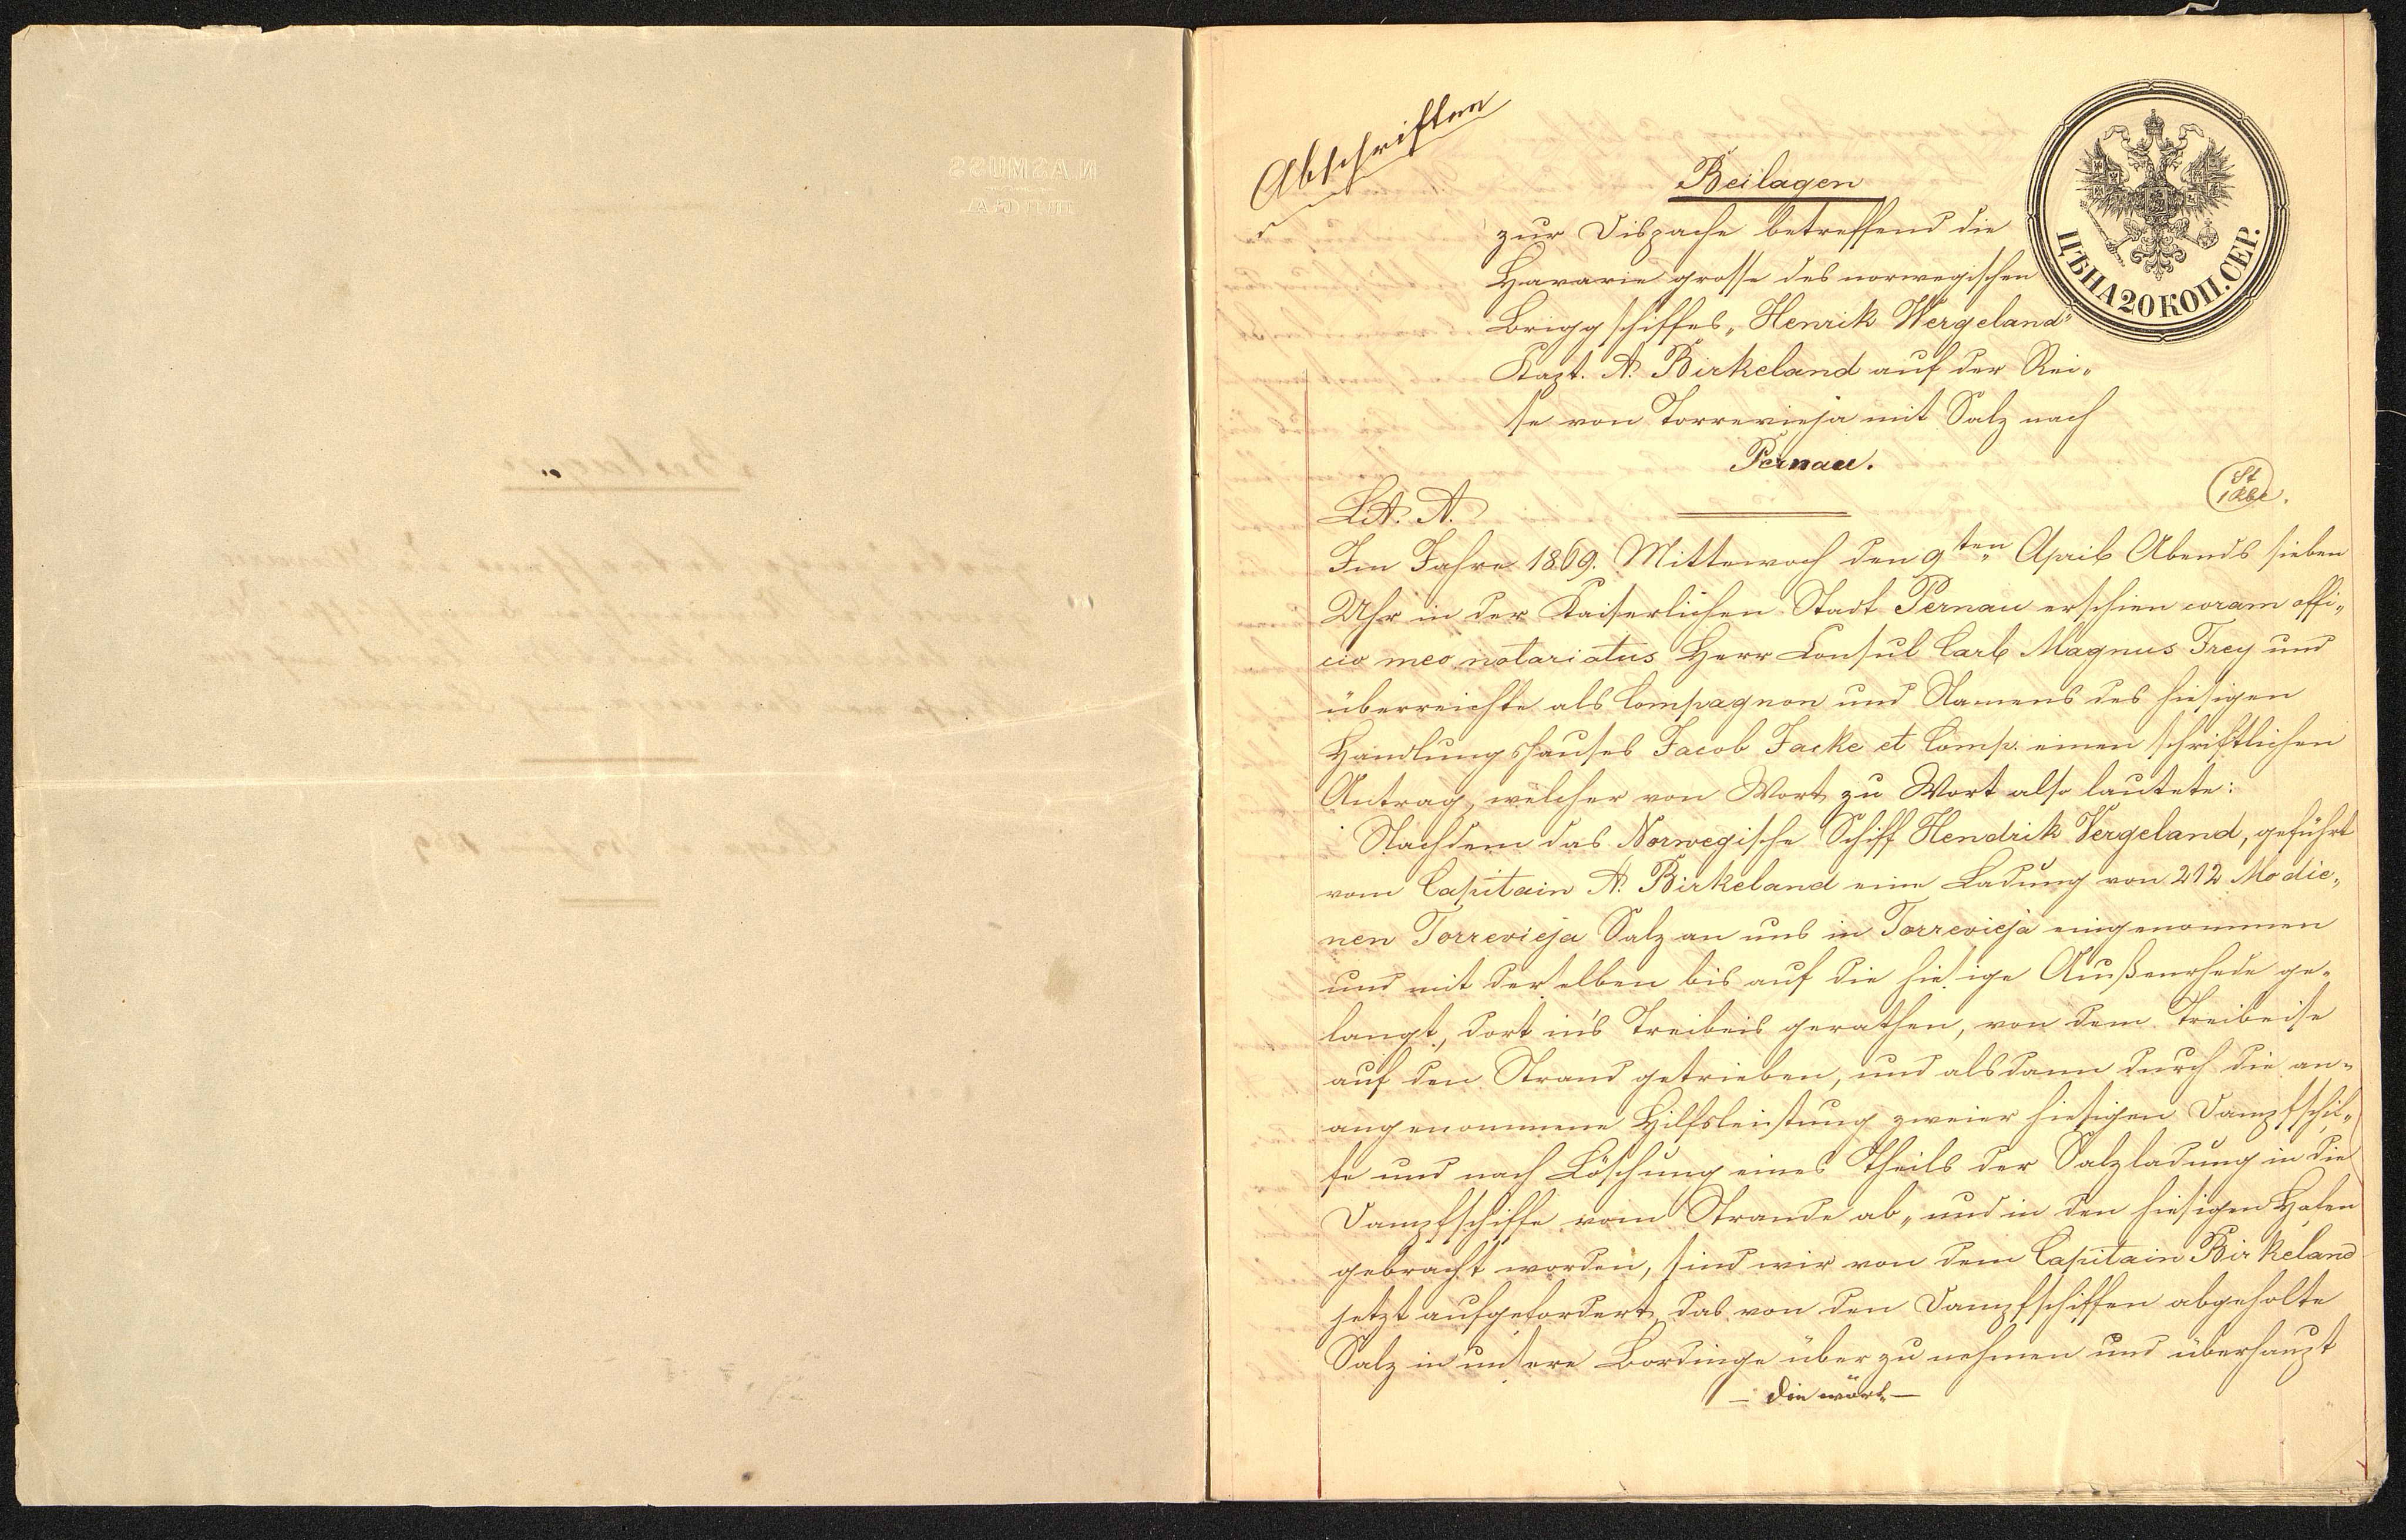 Abschriften
Beilagen
zur Dispache betreffend die
Havarie grosse des norwegischen
Briggschiffes „Henrik Wergeland"
Kapt. A. Birkeland auf der Rei„
se von Torrevieja mit Salz nach
Pernau.
ЦѢНА 20 КОП. СЕР.
St
1 Rbl.
Lit. A.
Im Jahre 1869. Mittewoch den 9ten April Abends sieben
Uhr in der Kaiserlichen Stadt Pernau erschien coram offi„
cio meo notariatus Herr Consul Carl Magnus Frey und
überreichte als Compagnon und Namens des hiesigen
Handlungshauses Jacob Jacke et Comp. einen schriftlichen
Antrag, welcher von Wort zu Wort also lautete:
Nachdem das Norwegische Schiff Hendrik Vergeland, geführt
vom Capitain A. Birkeland eine Ladung von 212 Modie„
nen Torrevieja Salz an uns in Torrevieja eingenommen
und mit derselben bis auf die hiesige Außenrhede ge„
langt, dort in's Treibeis gerathen, von dem Treibeise
auf den Strand getrieben, und alsdann durch die an„
angenommene Hilfsleistung zweier hiesigen Dampfschif„
fe und nach Löschung eines Theils der Salzladung in die
Dampfschiffe vom Strande ab„ und in den hiesigen Hafen
gebracht worden, sind wir von dem Capitain Birkeland
jetzt aufgefordert, das von den Dampfschiffen abgeholte
Salz in unsere Bordinge überzunehmen und überhaupt
— die wört„ —